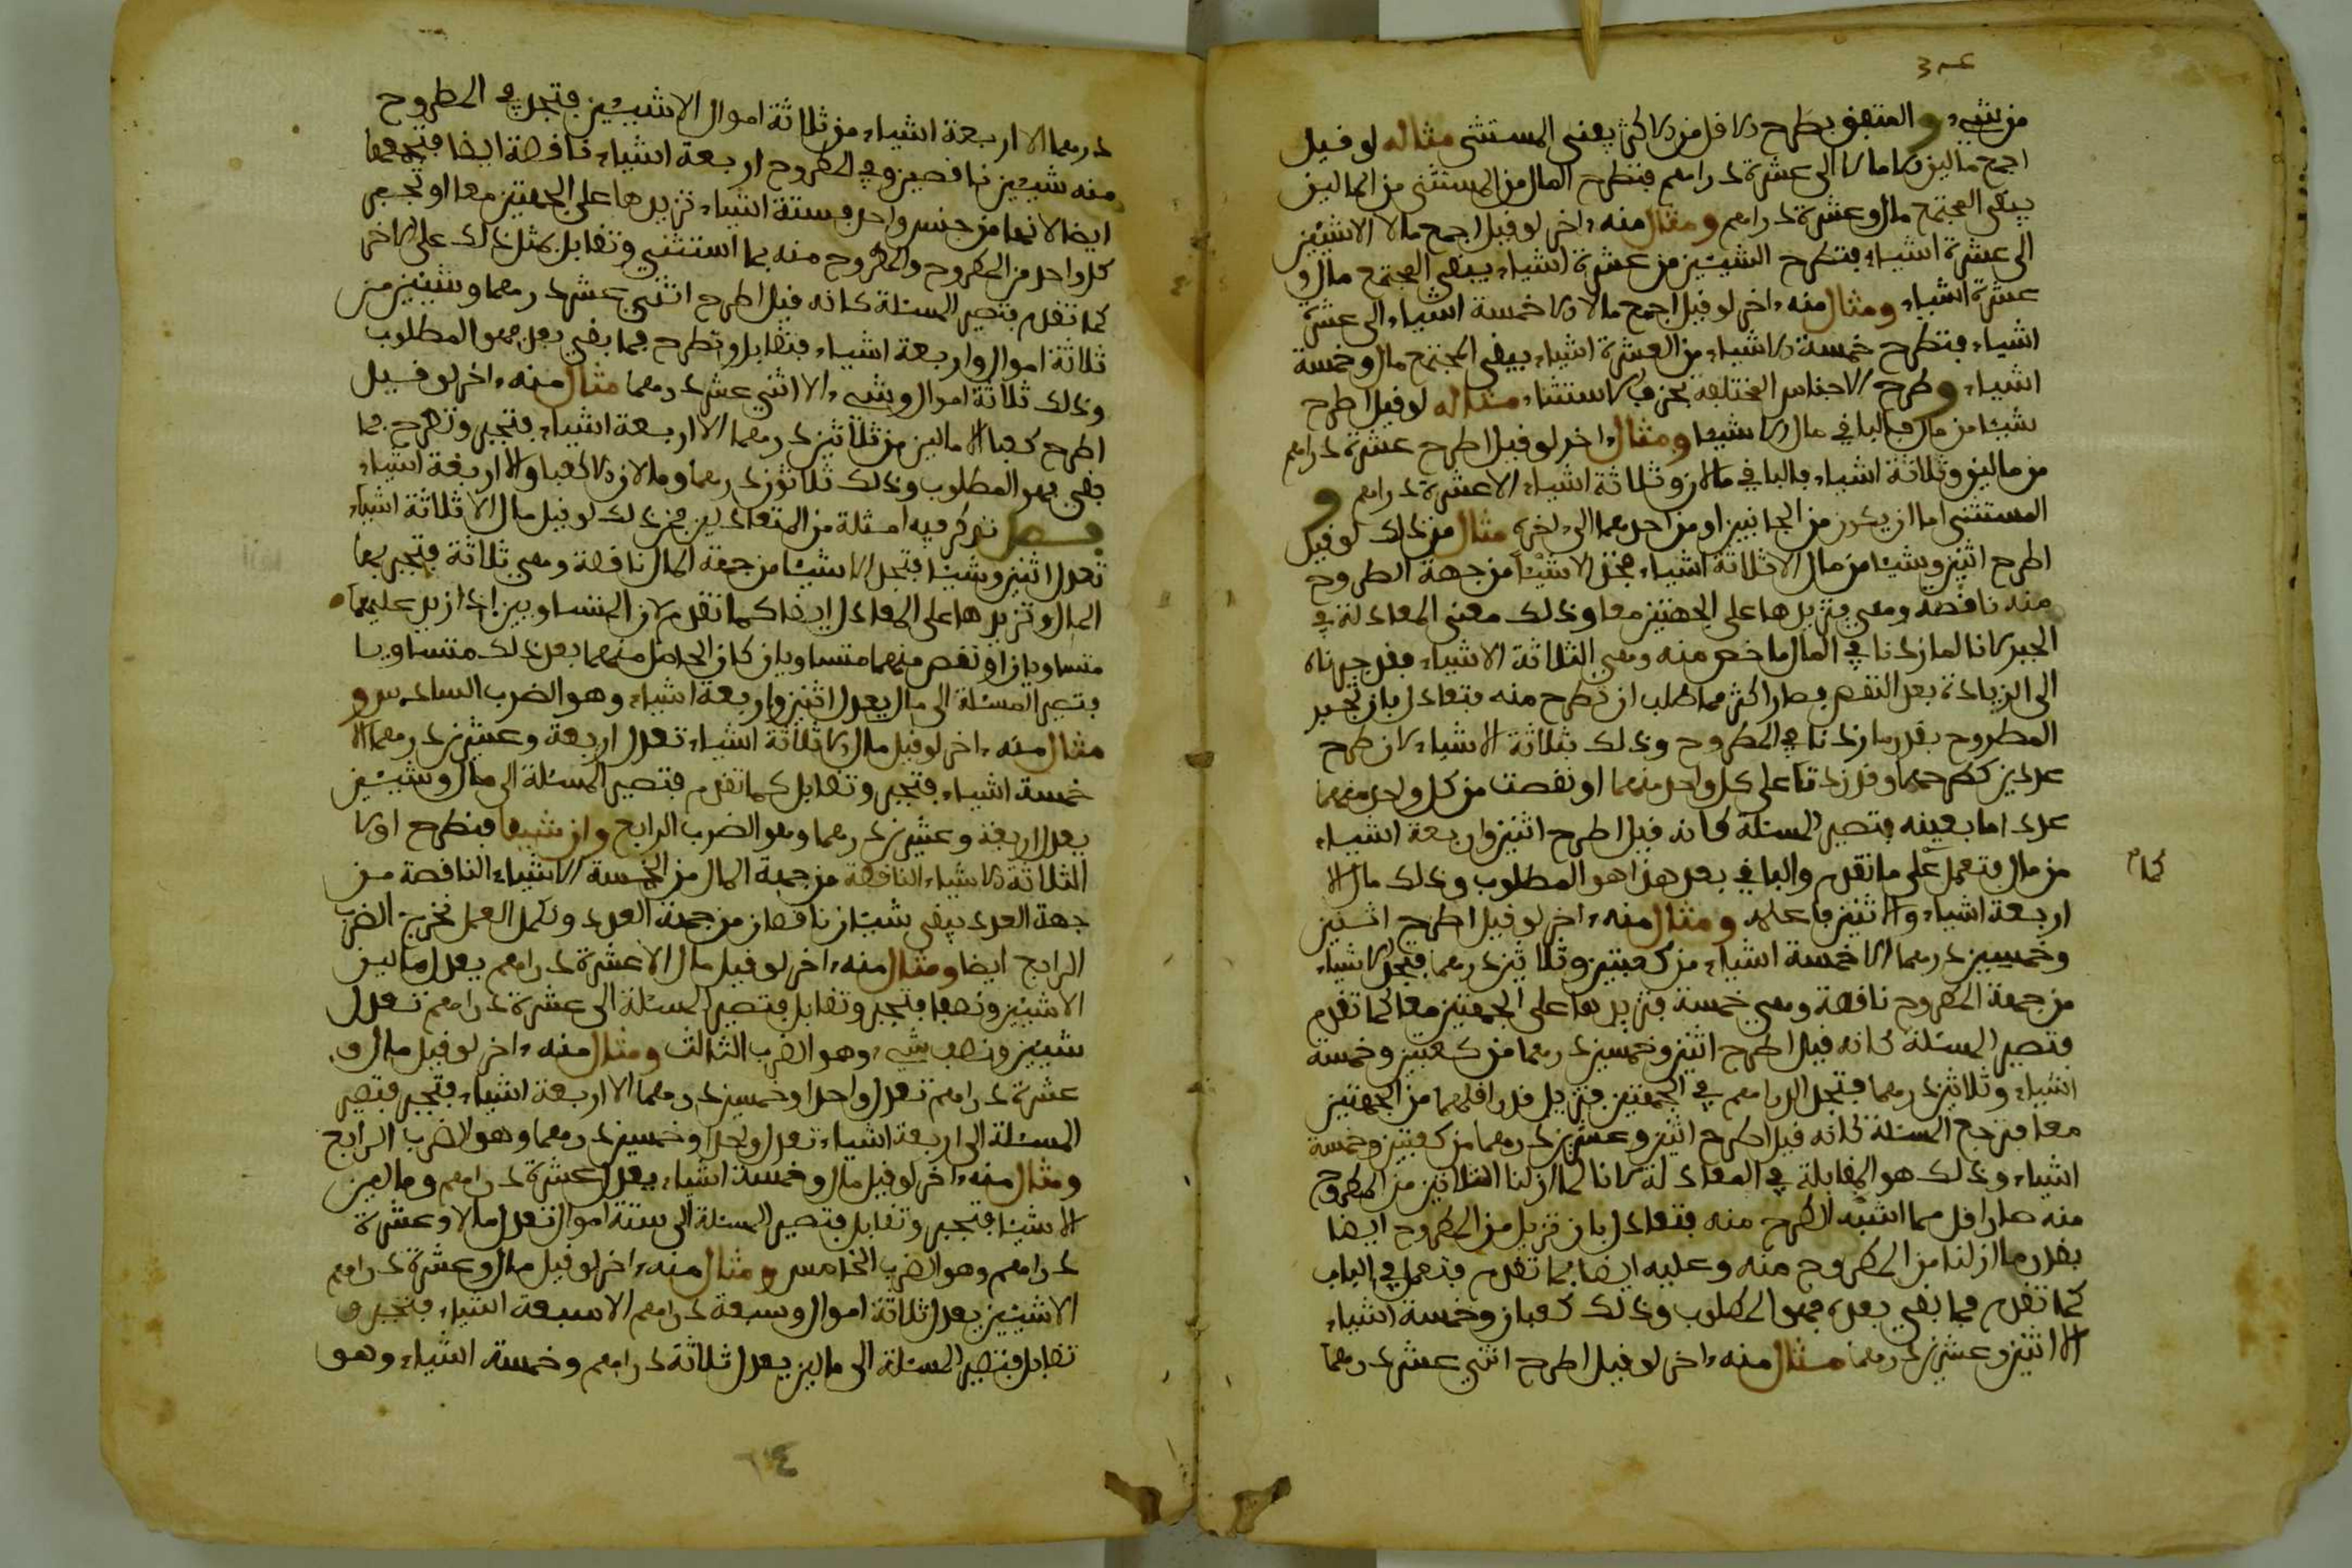 من شيء والمتفق بطرح الاقل من الاكثر يعني المستثنى مثاله لو قيل
اجمع مالين الا مالا الى عشرة دراهم فتطرح المال من المستثنى من المالين
يبقى المجتمع مال وعشرة دراهم ومثال منه اخر لو قيل اجمع مالا الا شيئين
الى عشرة اشياء فتطرح الشيئين من عشرة اشياء يبقى المجتمع مال و
عشرة اشياء ومثال منه اخر لو قيل اجمع مالا الا خمسة اشياء الى عشرة
اشياء فتطرح خمسة الاشياء من العشرة اشياء يبقى المجتمع مال وخمسة
اشياء وطرح الاجناس المختلفة بحرف الاستثناء مثاله لو قيل اطرح
شيئا من مال فالباقي مال الا شيئا ومثال اخر لو قيل اطرح عشرة دراهم
من مالين وثلاثة اشياء فالباقي مالان وثلاثة اشياء الا عشرة دراهم و
المستثنى اما ان يكون من الجانبين او من احدهما الى اخره مثال من ذلك لو قيل
اطرح اثنين وشيئا من مال الا ثلاثة اشياء فتجد الاشياء من جهة المطروح
منه ناقصة وهي فتزيدها على الجهتين معا وذلك معنى المعادلة في
الجبر لانا لما زدنا في المال ما خص منه وهي الثلاثة الاشياء فقد جبرناه
الى الزيادة بعد النقص فصار اكثر مما طلب ان نطرح منه فتعادل بان تجبر
المطروح بقدر ما زدنا في المطروح وذلك بثلاثة الاشياء لان طرح
عددين كطرحهما وقد زدت على كل واحد منهما او نقصت من كل واحد منهما
عددا ما بعينه فتصير المسئلة كانه قيل اطرح اثنين واربعة اشياء
كمام
من مال فتعمل على ما تقدم والباقي بعد هذا هو المطلوب وذلك مال الا
اربعة اشياء والا اثنين فاعلمه ومثال منه اخر لو قيل اطرح اثنين
وخمسين درهما الا خمسة اشياء من كعبين وثلاثين درهما فتجد الاشياء
من جهة المطروح ناقصة وهي خمسة فتزيدها على الجهتين معا كما تقدم
فتصير المسئلة كانه قيل اطرح اثنين وخمسين درهما من كعبين وخمسة
اشياء وثلاثين درهما فتجد الدراهم في الجهتين فتزيل قدر اقلهما من الجهتين
معا فترجع المسئلة كانه قيل اطرح اثنين وعشرين درهما من كعبين وخمسة
اشياء وذلك هو المقابلة في المعادلة لانا لما ازلنا الثلاثين من المطروح
منه صار اقل مما اشبه الطرح منه فتعادل بان تزيل من المطروح ايضا
بقدر ما ازلنا من المطروح منه وعليه ايضا بما تقدم فتعمل في الباب
كما تقدم فما بقي بعده فهو المطلوب وذلك كعبان وخمسة اشياء
الا اثنين وعشرين درهما مثال منه اخر لو قيل اطرح اثني عشر درهما
درهما الا اربعة اشياء من ثلاثة اموال الا شيئين فتجد في المطروح
منه شيئين ناقصين وفي المطروح اربعة اشياء ناقصة ايضا فتجمعها
ايضا لانهما من جنس واحد فستة اشياء تزيدها على الجهتين معا او تجبر
كل واحد من المطروح والمطروح منه بما استثني وتقابل بمثل ذلك على الاخر
كما تقدم فتصير المسئلة كانه قيل اطرح اثني عشر درهما وشيئين من
ثلاثة اموال واربعة اشياء فتقابل وتطرح فما بقي بعد فهو المطلوب
وذلك ثلاثة اموال وشيء الا اثني عشر درهما مثال منه اخر لو قيل
اطرح كعبا الا مالين من ثلاثين درهما الا اربعة اشياء فتجبر وتطرح فما
بقي فهو المطلوب وذلك ثلاثون درهما ومالان الا كعبا والا اربعة اشياء
فصل نذكر فيه امثلة من المتعادلين فمن ذلك لو قيل مال الا ثلاثة اشياء
تعدل اثنين وشيئا فتجد الاشياء من جهة المال ناقصة وهي ثلاثة فتجبر بها
المال وتزيدها على المعادل ايضا كما تقدم لان المتساويين اذا زيد عليهما
متساويان او نقص منهما متساويان كان الحاصل منهما بعد ذلك متساويا
فتصير المسئلة الى مال يعدل اثنين واربعة اشياء وهو الضرب السادس و
مثال منه اخر لو قيل مال الا ثلاثة اشياء تعدل اربعة وعشرين درهما الا
خمسة اشياء فتجبر وتقابل كما تقدم فتصير المسئلة الى مال وشيئين
يعدل اربعة وعشرين درهما وهو الضرب الرابع وان شيئا فتطرح اولا
الثلاثة الاشياء الناقصة من جهة المال من الخمسة الاشياء الناقصة من
جهة العدد يبقى شيئان ناقصان من جهة العدد وتكمل العمل تخرج الضرب
الرابع ايضا ومثال منه اخر لو قيل مال الا عشرة دراهم يعدل مالين
الا شيئين ونصفا فتجبر وتقابل فتصير المسئلة الى عشرة دراهم تعدل
شيئين ونصف شيء وهو الضرب الثالث ومثال منه اخر لو قيل مال و
عشرة دراهم تعدل واحدا وخمسين درهما الا اربعة اشياء فتجبر فتصير
المسئلة الى اربعة اشياء تعدل واحدا وخمسين درهما وهو الضرب الرابع
ومثال منه اخر لو قيل مال وخمسة اشياء يعدل عشرة دراهم ومالين
الا شيئا فتجبر وتقابل فتصير المسئلة الى ستة اموال تعدل مالا وعشرة
دراهم وهو الضرب الخامس ومثال منه اخر لو قيل مال وعشرة دراهم
الا شيئين يعدل ثلاثة اموال وسبعة دراهم الا سبعة اشياء فتجبر و
تقابل فتصير المسئلة الى مالين يعدل ثلاثة دراهم وخمسة اشياء وهو